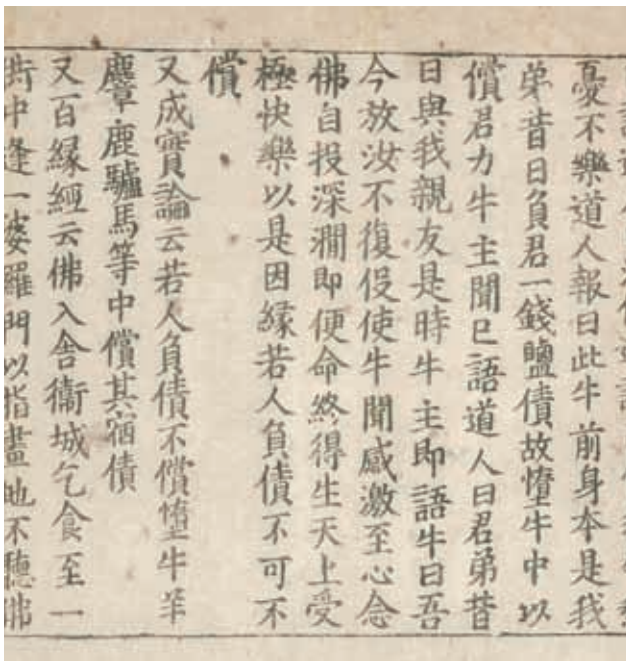 憂不樂道人報曰此牛前身本是我
弟昔日負君一錢鹽債故墮牛中以
償君力牛主聞巳語道人曰君弟昔
日與我親友是時牛主即語牛曰吾
今放汝不復伇使牛聞感激至心念
佛自投深澗即便命終得生天上受
極快樂以是因緣若人負債不可不
償
又成實論云若人負債不償墮牛羊
麞鹿驢馬等中償其宿債
又百緣經云佛入舍衛城乞食至一
街中逢一婆羅門以指畫地不聽佛